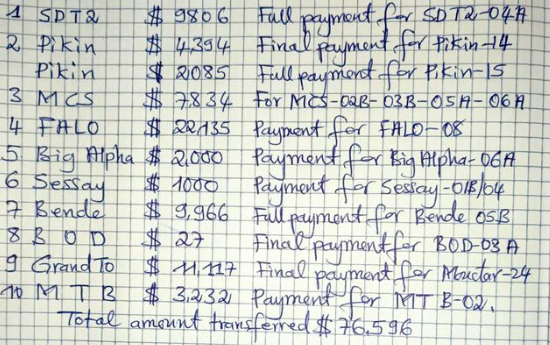 1 SDT2 $ 9806 Full payment for SDT2-04A
2 Pikin $ 4,394 Final payment for Pikin-14
Pikin $ 2085 Full payment for Pikin-15
3 MCS $ 7834 For MCS-02B-03B-05A-06A
4 FALO $ 22,135 Payment for FALO-08
5 Big Alpha $ 2,000 Payment for Big Alpha-06A
6 Sessay $ 1000 Payment for Sessay-01B/04
7 Bende $ 9,966 Full payment for Bende 05B
8 B O D $ 27 Final payment for BOD-03A
9 Grand To $ 11,117 Final payment for Moctar-24
10 M T B $ 3,232 Payment for MT B-02.
Total amount transferred $ 76.596